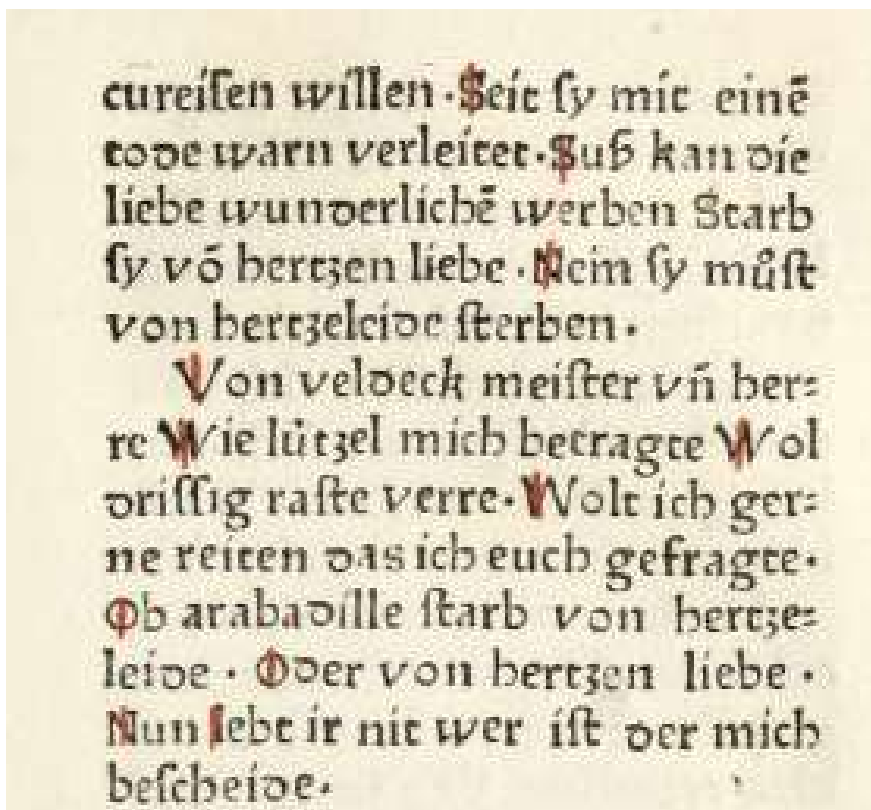 cureiſen willen · Seit ſy mit einē
tode warn verleitet · Suß kan die
liebe wunderlichē werben Starb
ſy vō hertzen liebe · Nein ſy můſt
von hertzeleide ſterben ·
Von veldeck meiſter vn̄ her⸗
re Wie lützel mich betragte Wol
driſſig raſte verre · Wolt ich ger⸗
ne reiten das ich euch gefragte ·
Ob arabadille ſtarb von hertze⸗
leide · Oder von hertzen liebe ·
Nun lebt ir nit wer iſt der mich
beſcheide ·